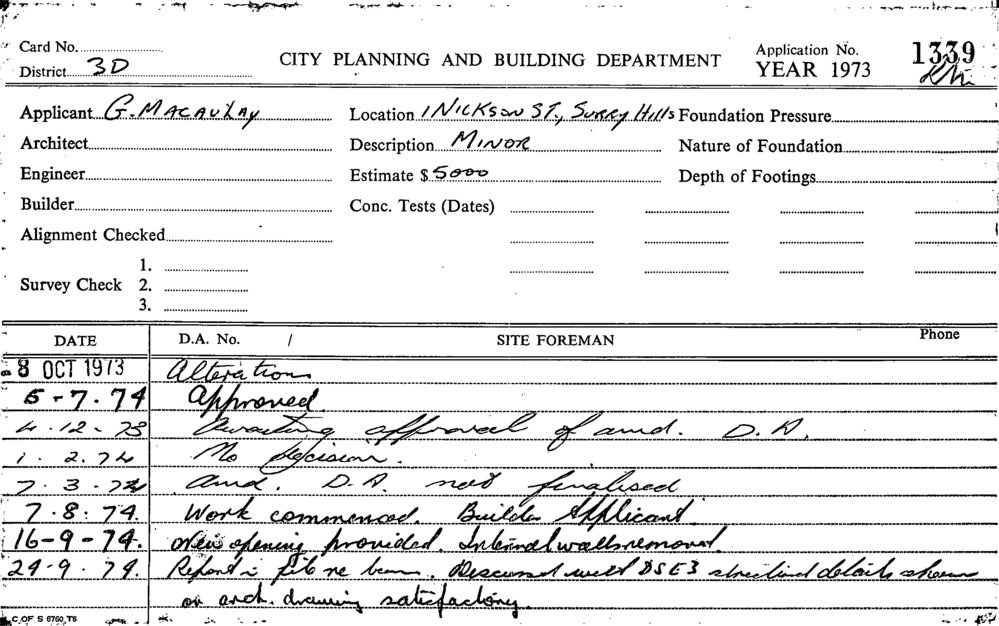 Card No.
District 3D
CITY PLANNING AND BUILDING DEPARTMENT
Application No. 1339
YEAR 1973
Applicant G. MACAULAY
Location 1 NICKSON ST., SURRY Hills
Foundation Pressure
Architect
Description MINOR
Nature of Foundation
Engineer
Estimate $ 5000
Depth of Footings
Builder
Conc. Tests (Dates)
Alignment Checked
Survey Check 1.
2.
3.
DATE D.A. No. / SITE FOREMAN Phone
8 OCT 1973 Alterations
5-7.74 Approved.
4.12.73 Awaiting approval of amd. D.A.
1.2.74 No decision.
7.3.74 amd. D.A. not finalised
7.8.74. Work commenced. Builder Applicant.
16-9-74. New opening provided. Internal walls removed.
24.9.74. Report in file re beam. Discussed with DSE3 structural details shown
on arch. drawing satisfactory.
C OF S 6760 T6